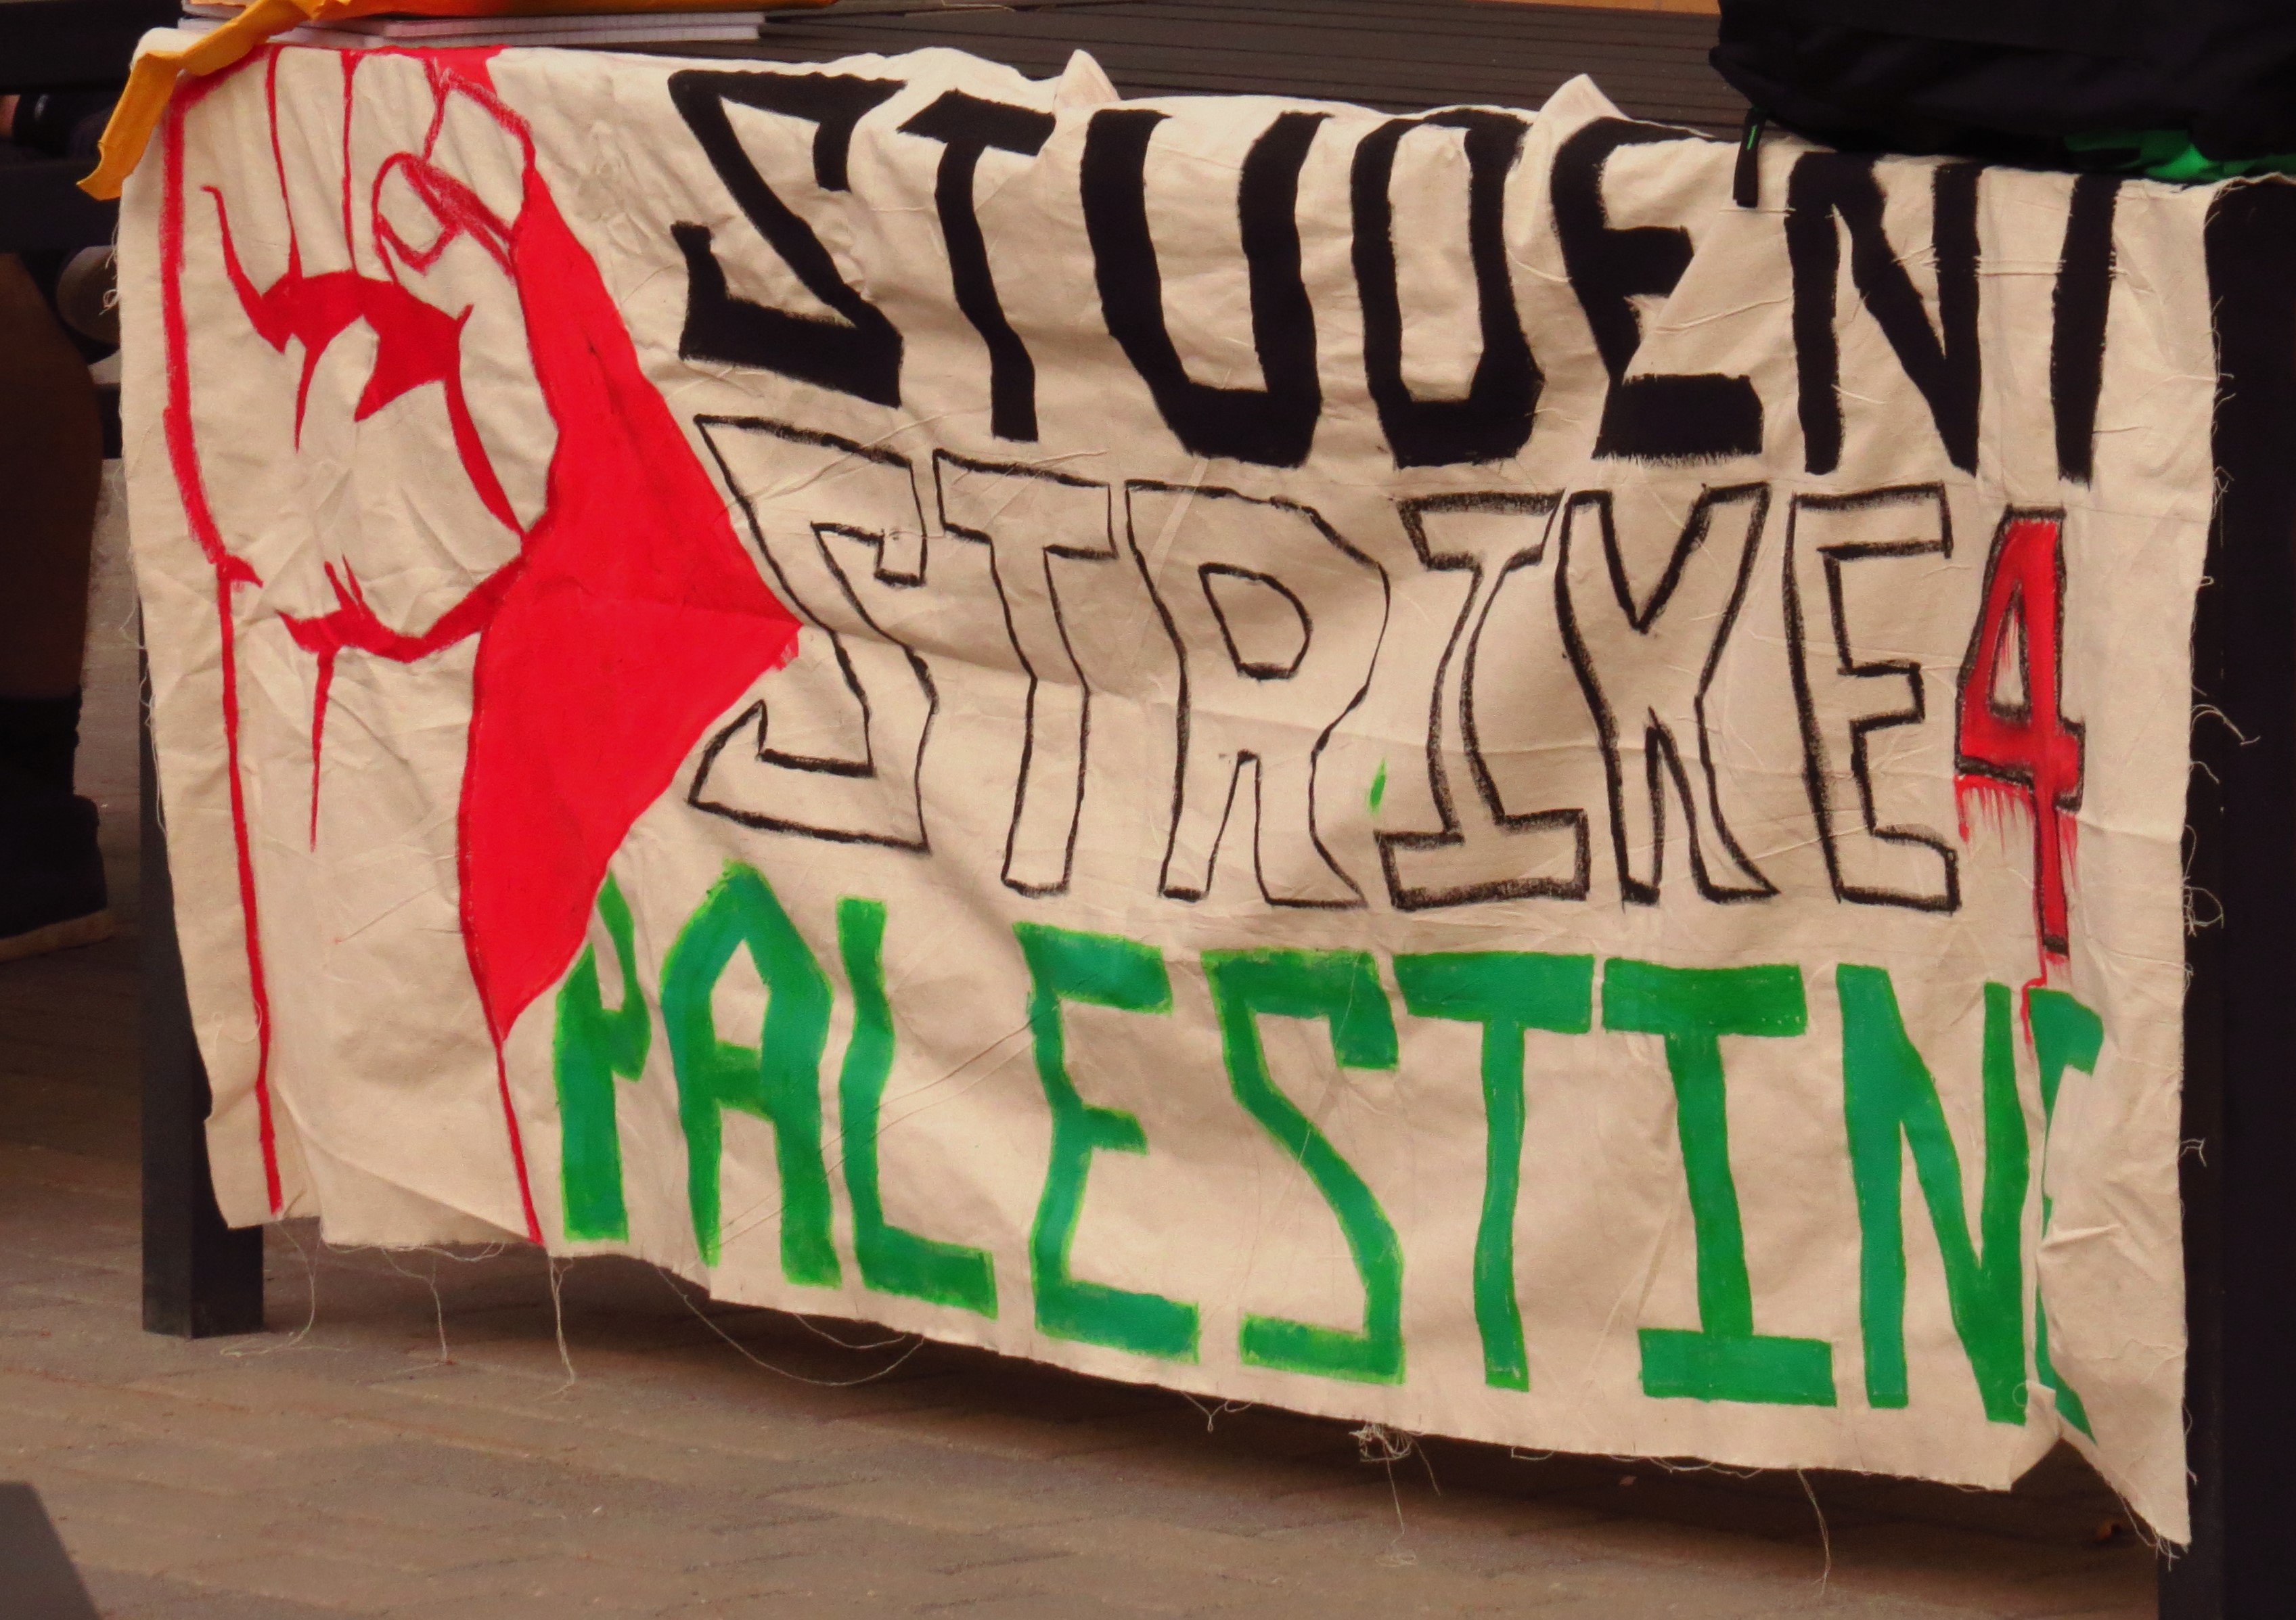 STUDENT
STRIKE 4
PALESTINE